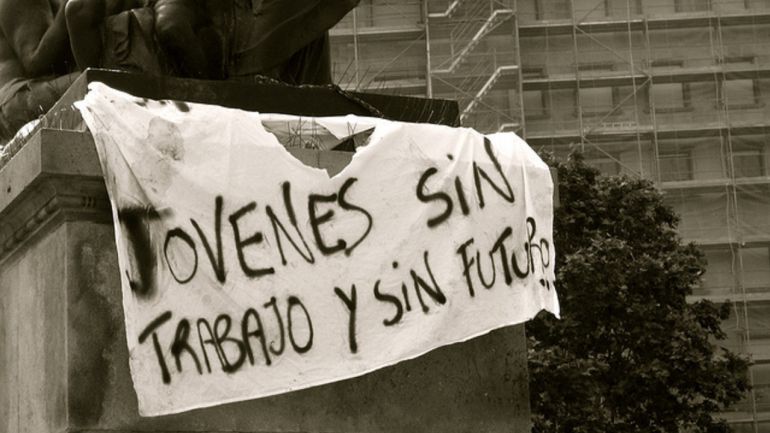 JOVENES SiN
TRABAJO Y SiN FUTURO!!